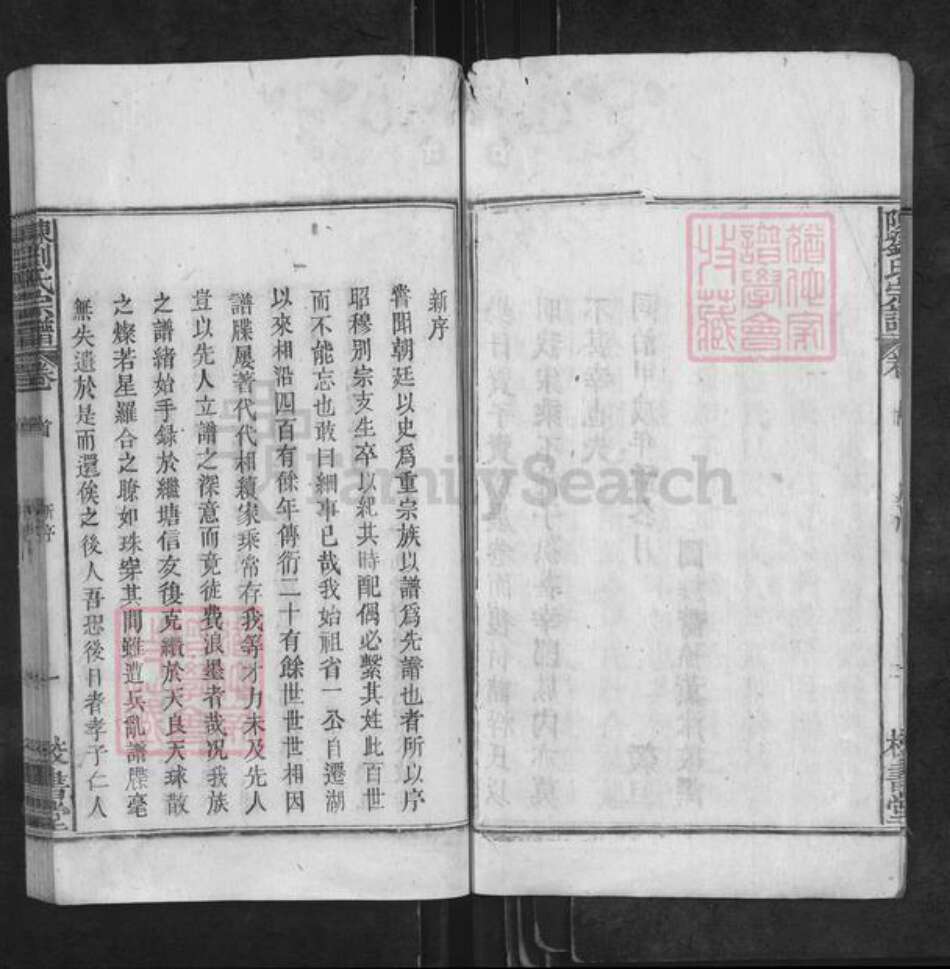 新序
嘗聞朝廷以史爲重宗族以譜爲先譜也者所以序
昭穆别宗支生卒以紀其時配偶必繫其姓此百世
而不能忘也敢曰細事已哉我始祖省一公自遷湖
以來相沿四百有餘年傳衍二十有餘世世世相因
譜牒屢著代代相續家乘常存我等才力未及先人
豈以先人立譜之深意而竟徒費浪墨者哉况我族
之譜緒始手録於繼塘信友後克纘於天良天球散
之燦若星羅合之瞭如珠穿其間雖遭兵亂譜牒毫
無失遺於是而還俟之後人吾恐後日者孝子仁人
陳劉氏宗譜
卷
首
新序
一
校書堂
陳劉氏宗譜
卷
一
校書堂
猶他家
譜學會
收藏
FamilySearch